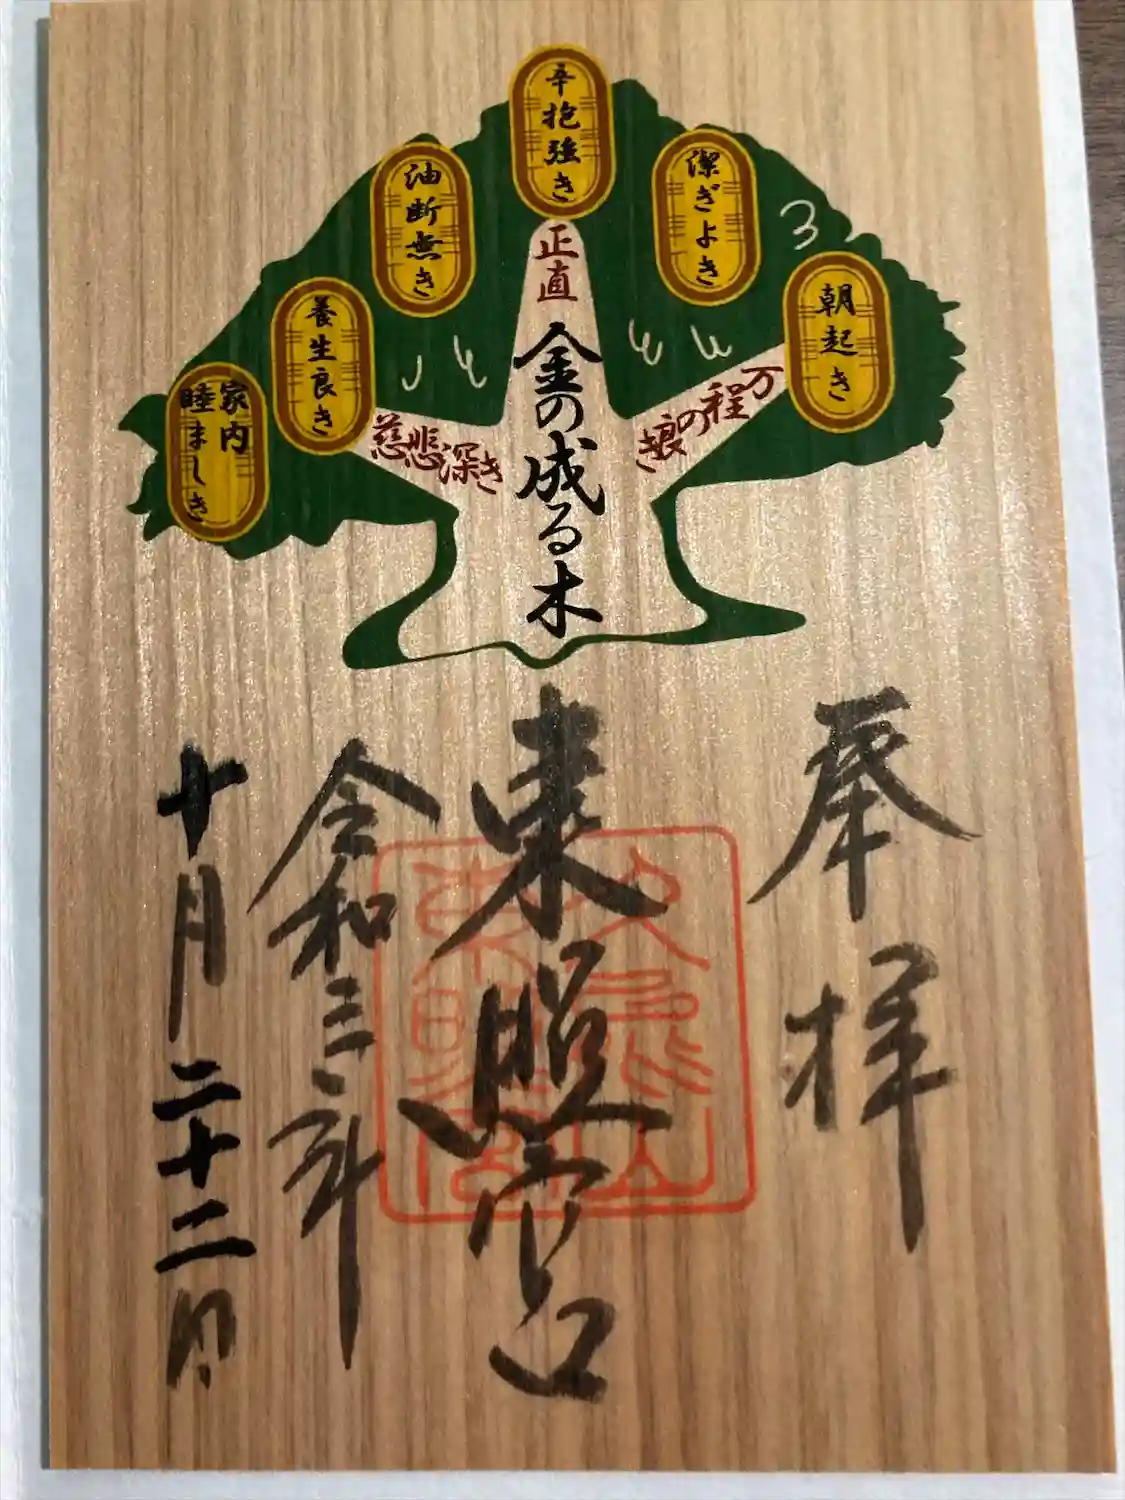 朝起き
潔ぎよき
辛抱強き
油断無き
養生良き
家内
睦ましき
万程の良き
正直
慈悲深き
金の成る木
奉拝
東照宮
令和三年
十月二十二日